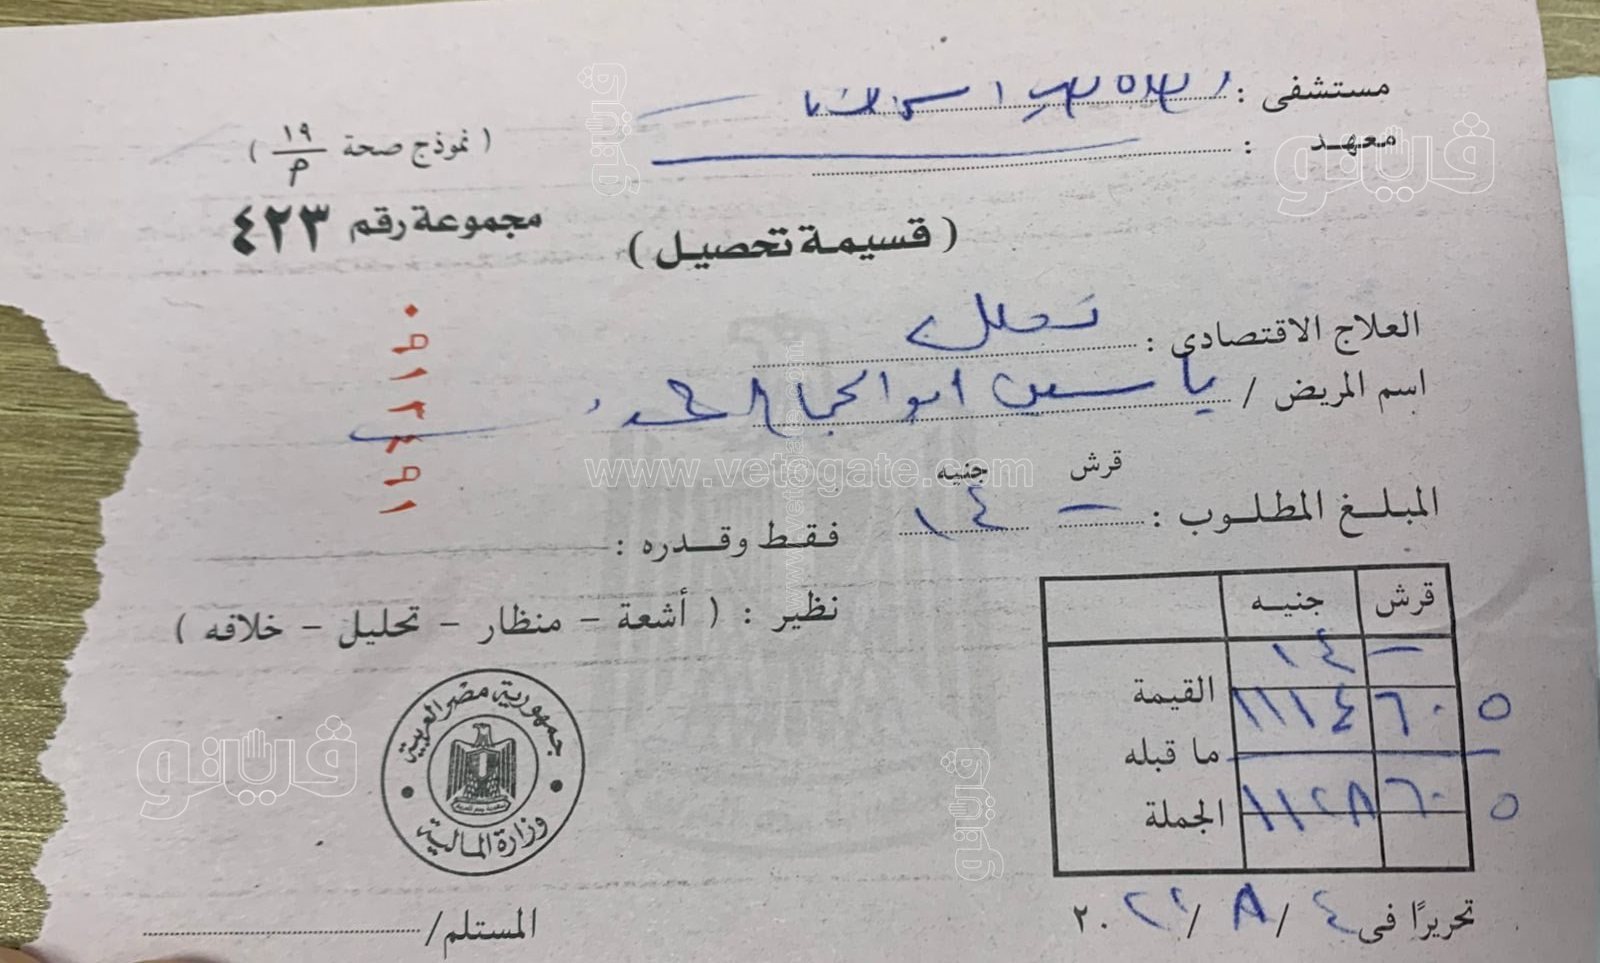 مستشفى :
معهد :
( نموذج صحة ١٩/م )
مجموعة رقم ٤٢٣
( قسيمة تحصيل )
العلاج الاقتصادى : تحليل
اسم المريض / ياسين ابو الحجاج
قرش جنيه
المبلغ المطلوب : — ١٤ فقط وقدره :
نظير : ( أشعة - منظار - تحليل - خلافه )
قرش جنيه
— ١٤ القيمة
٦٠٥ ١١١٤ ما قبله
٦٠٥ ١١٢٨ الجملة
جمهورية مصر العربية
وزارة المالية
تحريرًا فى ٤ / ٨ /
المستلم/
www.vetogate.com
www.vetogate.com
ڤيتو
ڤيتو
ڤيتو
ڤيتو